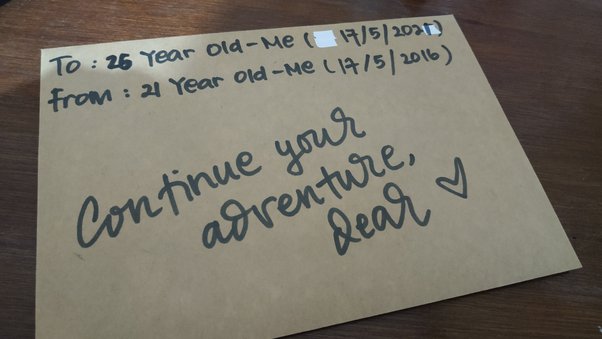 To : 26 Year Old-Me ( 17/5/2021)
From : 21 Year Old-Me (17/5/2016)
Continue your
adventure,
dear